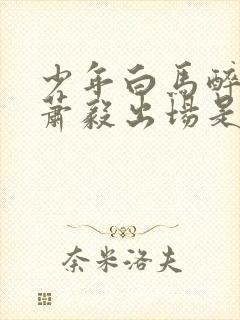 少年白馬醉
蕭毅出場是
奈米洛夫